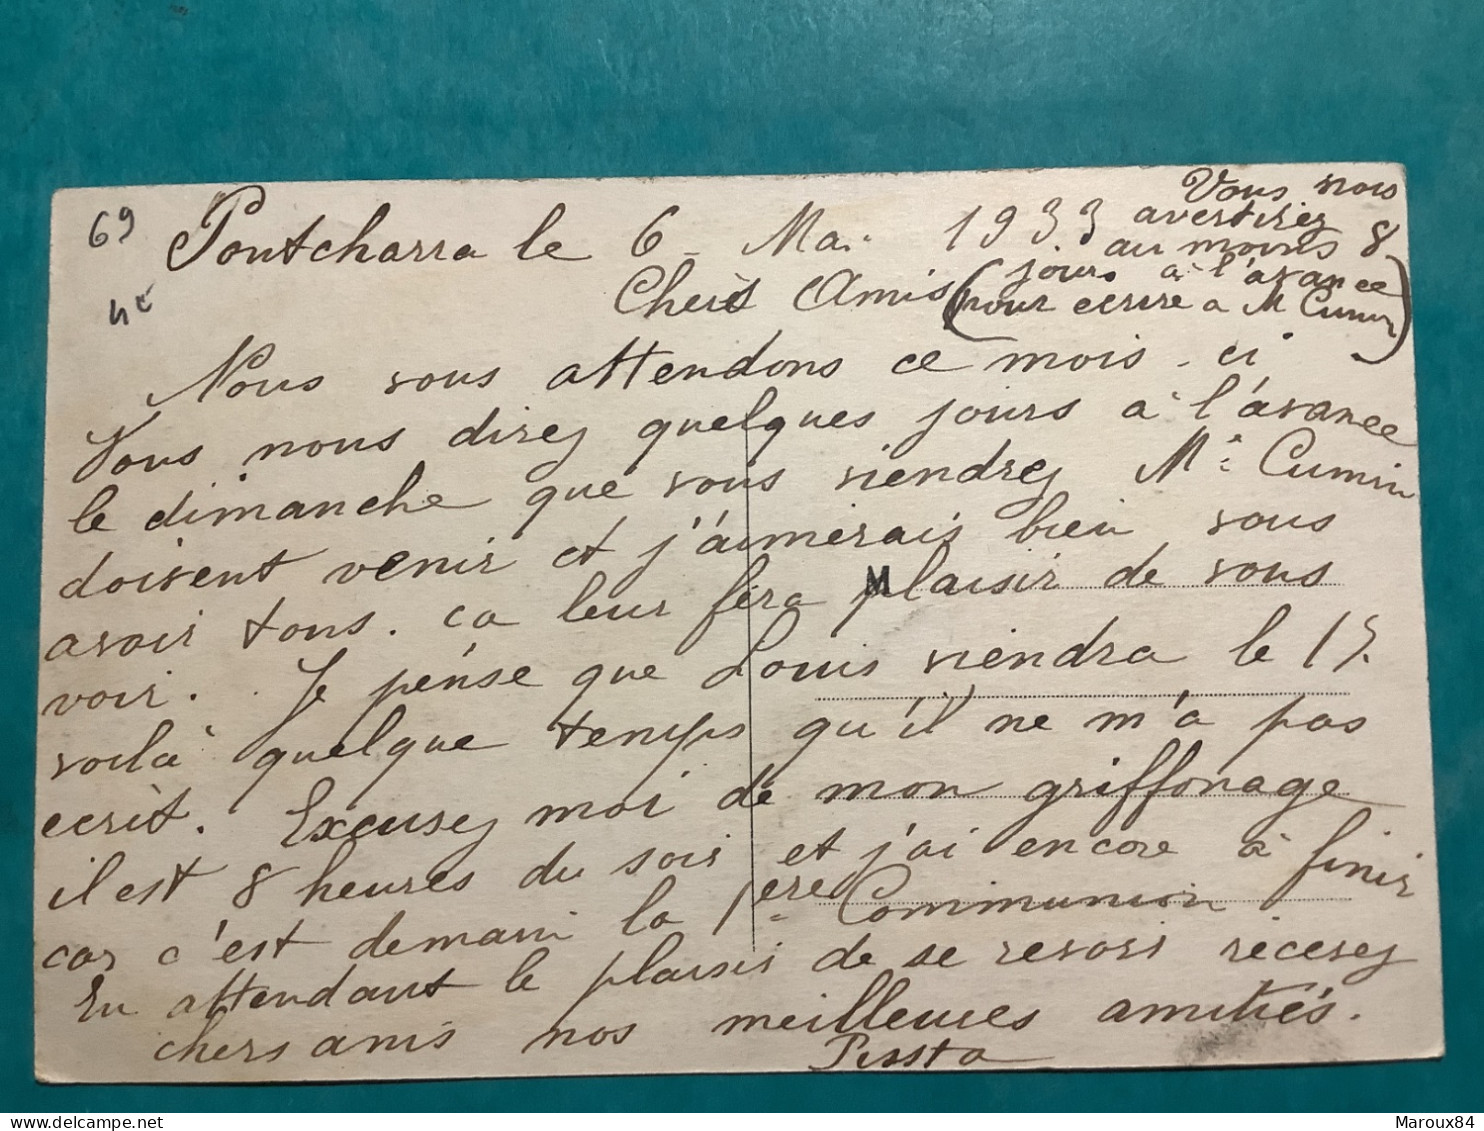 69
4€
Pontcharra le 6 - Mai 1933
Vous nous
avertirez
au moins 8
jours à l'avance
(pour ecrire a M Cumin)
Cherès Amis
Nous vous attendons ce mois-ci
Vous nous direz quelques jours à l'avance
le dimanche que vous viendrez Mr Cumin
doivent venir et j'aimerais bien vous
avoir tous. ca leur féra plaisir de vous
voir. Je pense que Louis viendra le 15.
voilà quelque temps qu'il ne m'a pas
ecrit. Excusez moi de mon griffonage
il est 8 heures du soir et j'ai encore à finir
car c'est demain la 1ère Communion.
En attendant le plaisir de se revoir recevez
chers amis nos meilleures amitiés.
M
Maroux84